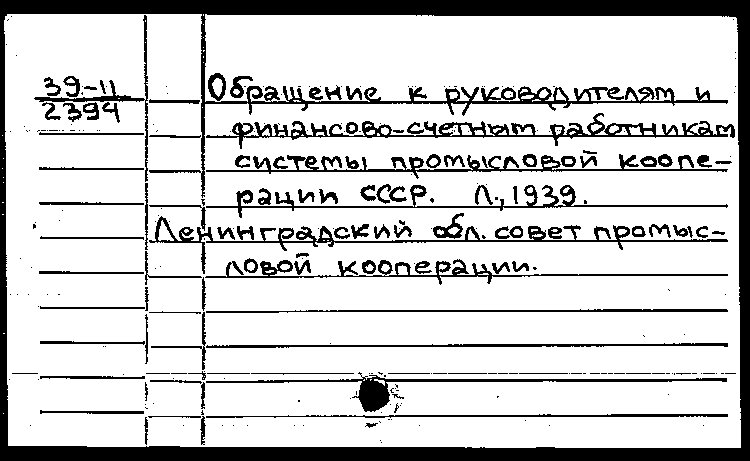 39-11
2394
Обращение к руководителям и
финансово-счетным работникам
системы промысловой коопе-
рации СССР. Л., 1939.
Ленинградский обл. совет промыс-
ловой кооперации.